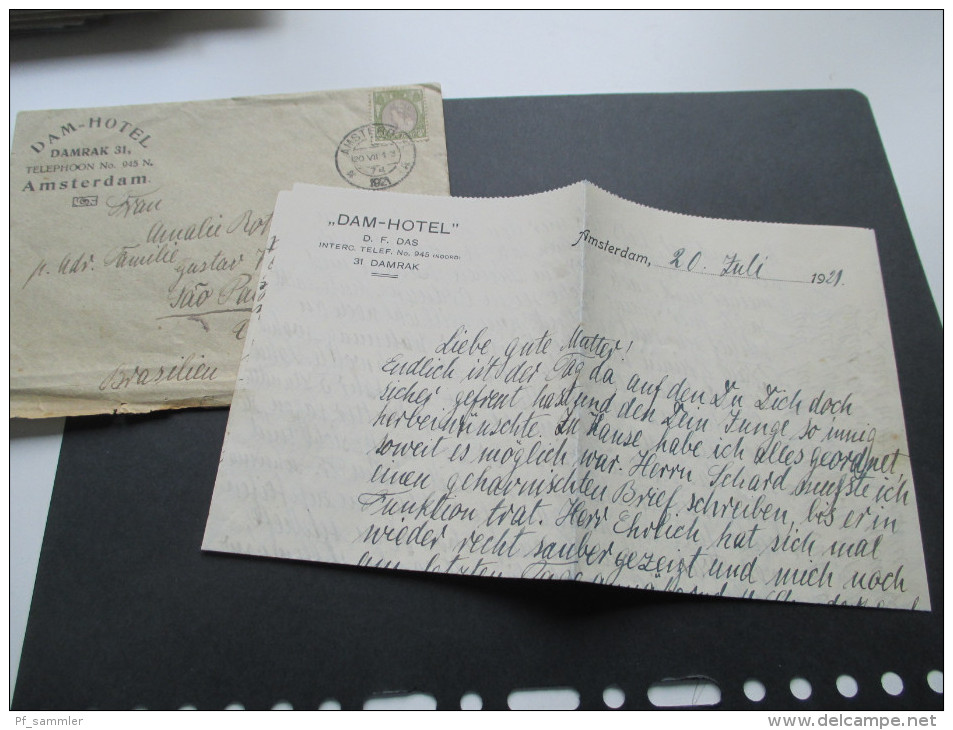 DAM-HOTEL
DAMRAK 31,
TELEPHOON No. 945 N.
Amsterdam.
AMSTERD
20 VII
1921
Frau
Amalie Rot
p. Adr. Familie
Gustav
São Pa
Brasilien
„DAM-HOTEL"
D. F. DAS
INTERC. TELEF. No. 945 (NOORD)
31 DAMRAK
Amsterdam, 20. Juli 1921.
Liebe, gute Mutter!
Endlich ist der Tag da, auf den Du Dich doch
sicher gefreut hast und den Dein Junge so innig
herbeiwünschte. Zu Hause habe ich alles geordnet
soweit es möglich war. Herrn Schard musste ich
einen geharnischten Brief schreiben, bis er in
Funktion trat. Herr Ehrlich hat sich mal
wieder recht sauber gezeigt und mich noch
am letzten Tage
Pf_sammler
www.delcampe.net